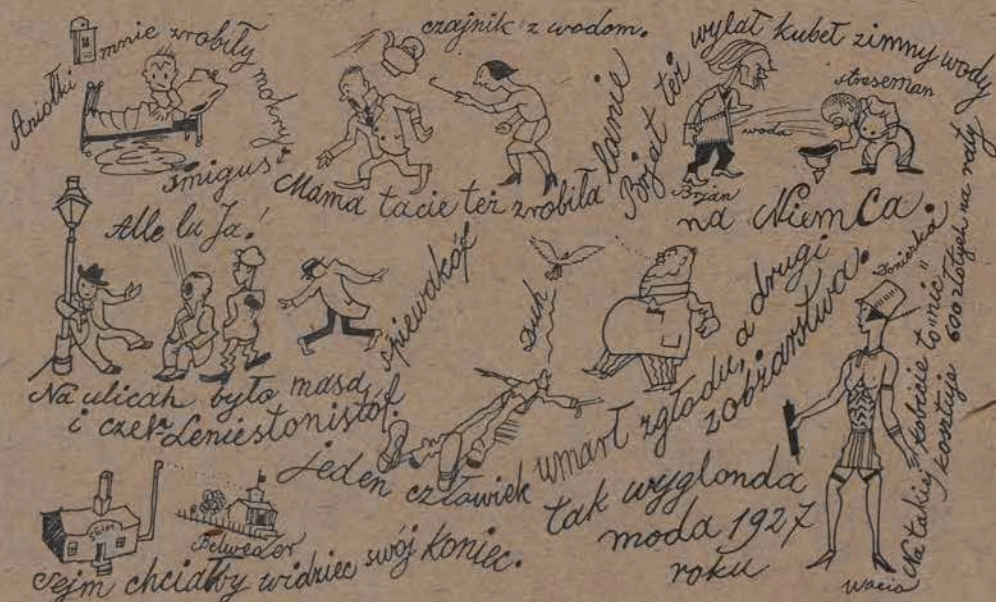 Aniołki mnie zrobiły mokry
śmigus
czajnik z wodom.
Mama tacie też zrobiła lanie
Bryjat też
wylał kubeł zimny wody
na NiemCa.
streseman
woda
Bryjan
Alle lu Ja!
Na ulicah było masą śpiewakóf
i czek Leniestonistóf.
Duh
Jeden człowiek umarł zgłodu, a drugi
zobżarstwa.
tak wyglonda
moda 1927
roku
Wacio
Jonierka
Na takiej kobzieie to „nic"
kosztuje 600 złotych na raty
SEJM
Belweder
Sejm chciałby widziec swój koniec.